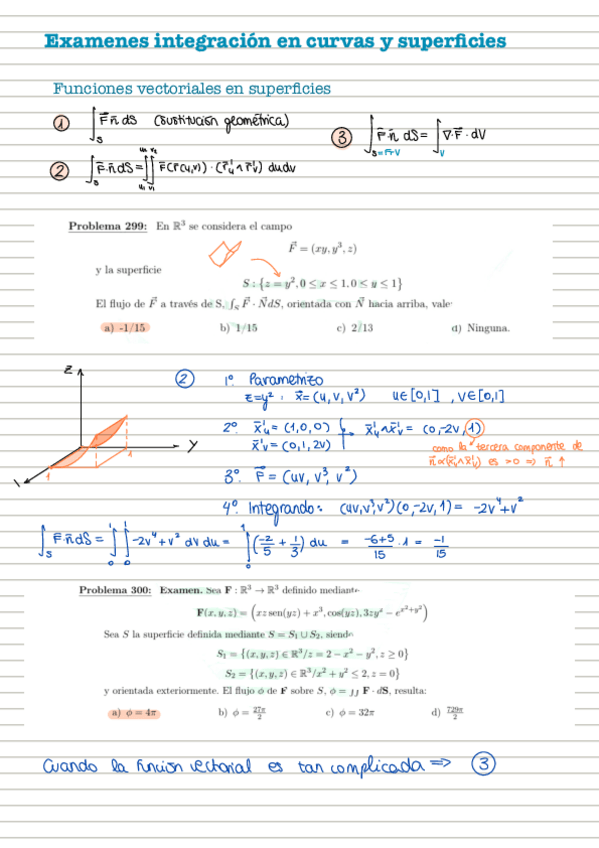 Examenes integración en curvas y superficies
Funciones vectoriales en superficies
① ∫_S F⃗ n⃗ dS (sustitución geométrica)
③ ∫_{S=Fr V} F⃗·n⃗ dS = ∫_V ∇·F⃗ · dV
② ∫_S F⃗·n⃗ dS = ∫_{u₁}^{u₂} ∫_{v₁}^{v₂} F⃗(r⃗(u,v)) · (r⃗'_u ∧ r⃗'_v) du dv
Problema 299: En ℝ³ se considera el campo
F⃗ = (xy, y³, z)
y la superficie
S : {z = y², 0 ≤ x ≤ 1, 0 ≤ y ≤ 1}
El flujo de F⃗ a través de S, ∫_S F⃗ · N⃗dS, orientada con N⃗ hacia arriba, vale
a) -1/15 b) 1/15 c) 2/13 d) Ninguna.
② 1º Parametrizo
z=y² : x⃗ = (u, v, v²) u∈[0,1] , v∈[0,1]
2º x⃗'_u = (1,0,0)
x⃗'_v = (0,1,2v)
x⃗'_u ∧ x⃗'_v = (0,-2v,1)
como la tercera componente de
n⃗ ∝ (x⃗'_u ∧ x⃗'_v) es >0 ⇒ n⃗ ↑
Z
Y
1
1
3º F⃗ = (uv, v³, v²)
4º Integrando: (uv,v³,v²)(0,-2v,1) = -2v⁴+v²
∫_S F⃗·n⃗ dS = ∫_0^1 ∫_0^1 -2v⁴+v² dv du = ∫_0^1 (-2/5 + 1/3) du = -6+5/15 · 1 = -1/15
Problema 300: Examen. Sea F : ℝ³ → ℝ³ definido mediante
F(x, y, z) = (xz sen(yz) + x³, cos(yz), 3zy² − e^{x²+y²})
Sea S la superficie definida mediante S = S₁ ∪ S₂, siendo
S₁ = {(x, y, z) ∈ ℝ³/z = 2 − x² − y², z ≥ 0}
S₂ = {(x, y, z) ∈ ℝ³/x² + y² ≤ 2, z = 0}
y orientada exteriormente. El flujo ϕ de F sobre S, ϕ = ∫∫ F · dS, resulta:
a) ϕ = 4π b) ϕ = 27π/2 c) ϕ = 32π d) 729π/2
Cuando la función vectorial es tan complicada ⇒ ③